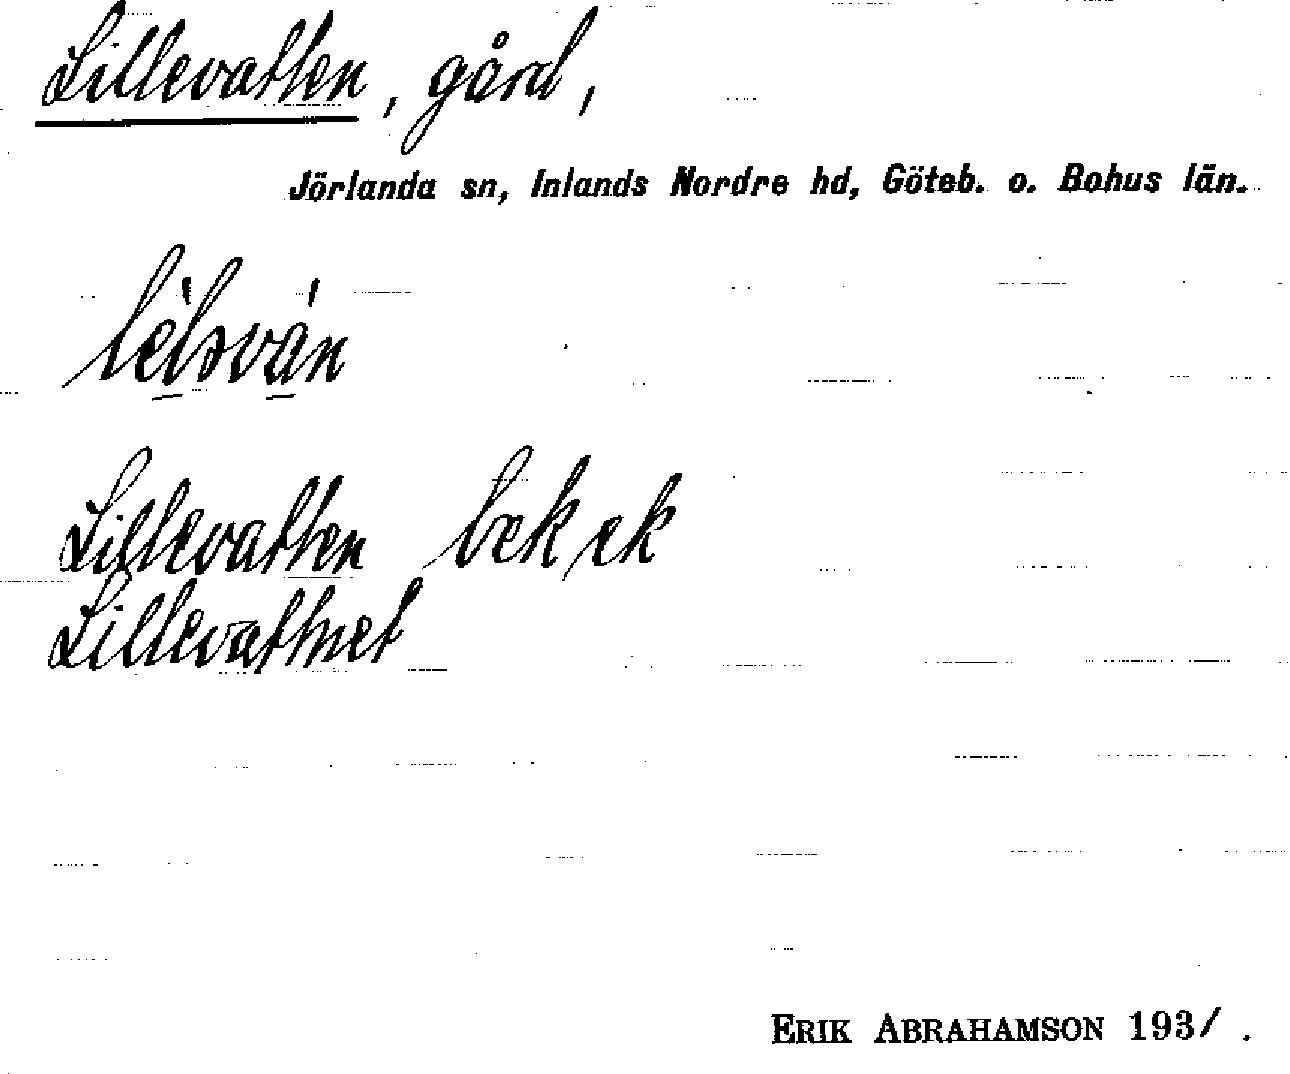 Lillevatten, gård,
Jörlanda sn, Inlands Nordre hd, Göteb. o. Bohus län.
Lillevatten bek ek
Lillevattnet
ERIK ABRAHAMSON 193/.